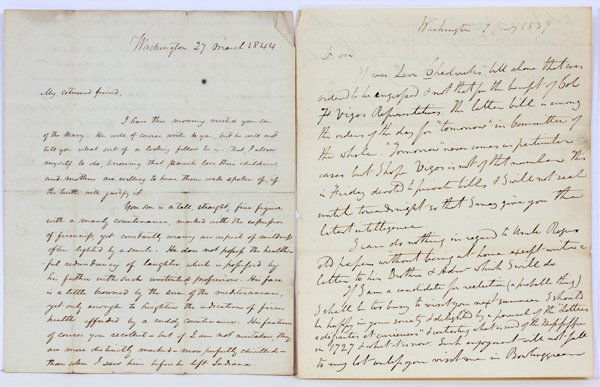 Washington 27 March 1844
My esteemed friend,
I have this morning visited you son
of the Navy. He will of course write to you, but he will not
tell you what sort of a looking fellow he is. But I allow
myself to do, knowing that parents love their children,
and mothers are willing to hear them well spoken of, if
the truth will justify it.
You son is a tall, straight, fine figure,
with a manly countenance, marked with the expression
of firmness, yet constantly wearing an aspect of mildness,
often lighted by a smile. He does not possess the
redundancy of laughter, which is possessed by
his father with such profusion. His face
is a little browned by the sun of the Mediterranean,
yet only enough to heighten the indication of firm
health afforded by a ruddy countenance. His features
of course you recollect – but if I am not mistaken they
are more distinctly marked – more perfectly chiselled –
than when I saw him before he left Indiana.
Washington 17 1839
"Leon Frederick's" bill alone that was
ordered to be engrossed & not that for the benefit of Col
F Vigo's Representatives. The latter bill is among
the orders of the day for "tomorrow" in Committee of
the whole. "Tomorrow" never comes in particular
cases but I hope Vigo's is not of that number. This
is Friday devoted to private bills & I will not seal
until to midnight so that I may give you the
latest intelligence.
I can do nothing in regard to Uncle
old papers without being at home except write a
letter to his Brother & which I will do.
If I am a candidate for reelection (a probable thing)
I shall be too busy to visit you next summer. I should
be happy in your society & delighted by a perusal of the "letters
" & contrasting what was of the Mississippi
in 1727 & what it is now. Such enjoyment will not fall
to my lot unless you visit me in